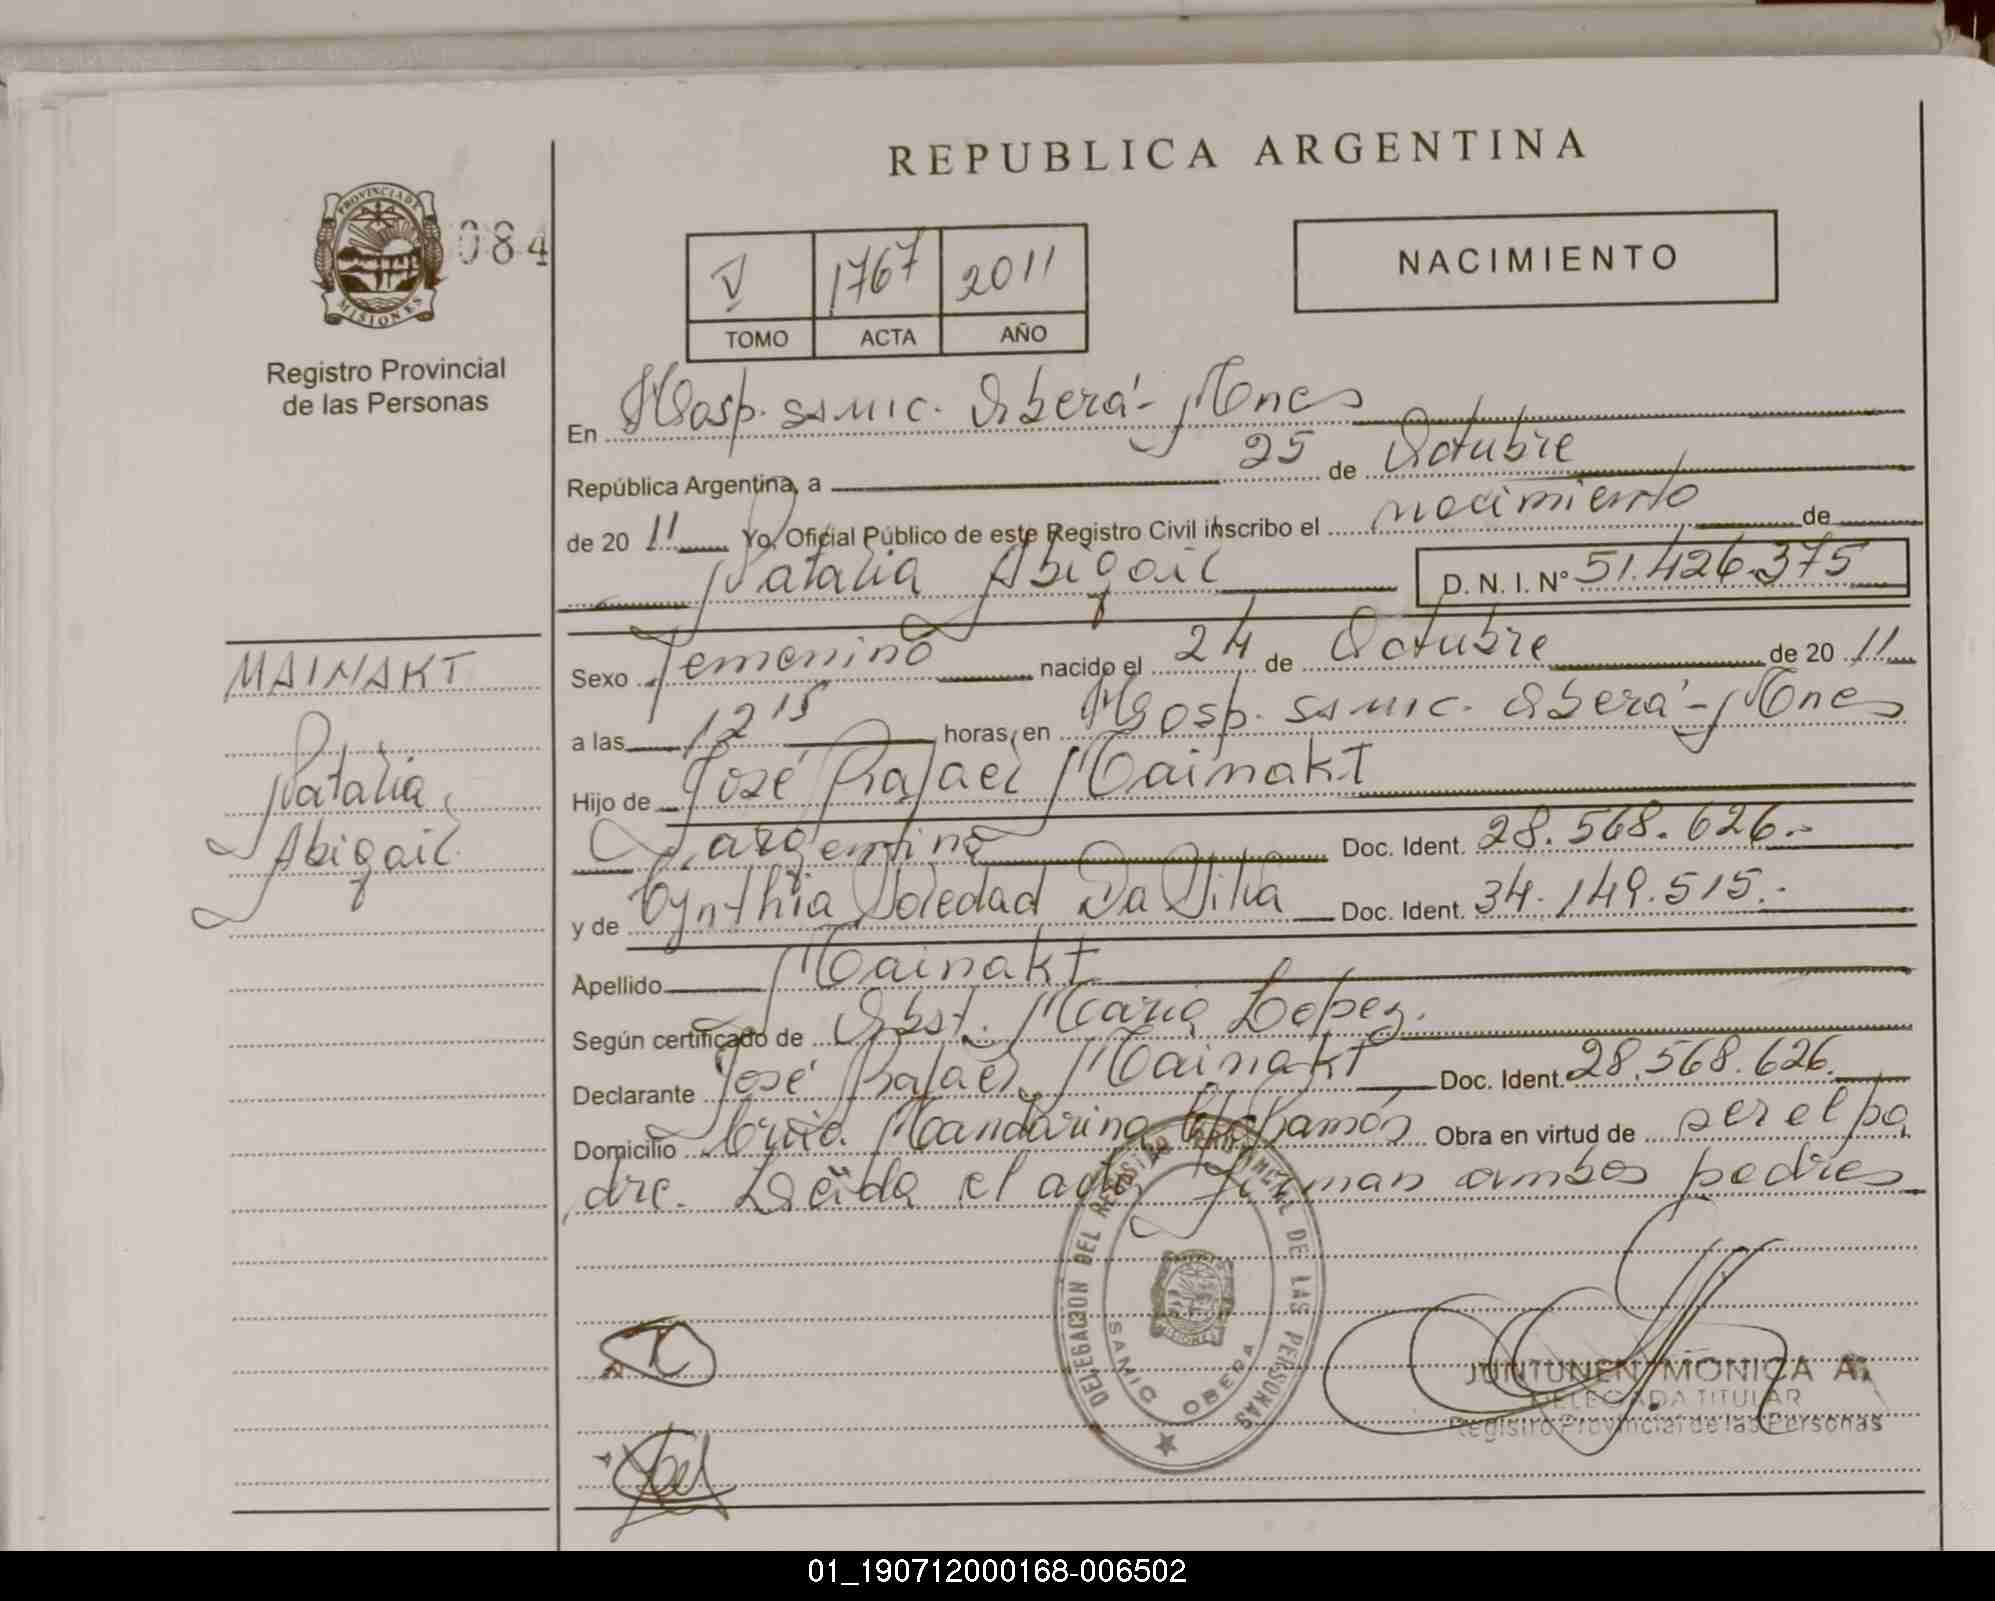 REPUBLICA ARGENTINA
PROVINCIA DE
MISIONES
084
Registro Provincial
de las Personas
V 1767 2011
TOMO ACTA AÑO
NACIMIENTO
En Hosp. SAMIC. Oberá - Mnes
República Argentina, a 25 de Octubre
de 20 11 Yo, Oficial Público de este Registro Civil inscribo el nacimiento de
Natalia Abigail D. N. I. Nº 51.426.375
Sexo Femenino nacido el 24 de Octubre de 20 11
a las 12 15 horas, en Hosp. SAMIC. Oberá - Mnes
Hijo de José Rafael Mainakt
argentino Doc. Ident. 28.568.626.-
y de Cynthia Soledad Da Silva Doc. Ident. 34.149.515.-
Apellido Mainakt
Según certificado de Obst. Maria Lopez.
Declarante José Rafael Mainakt Doc. Ident. 28.568.626.
Domicilio Mandarina Ramón Obra en virtud de ser el pa
dre. Leída el acta, firman ambos padres
MAINAKT
Natalia
Abigail
DELEGACION DEL REGISTRO PROVINCIAL DE LAS PERSONAS
SAMIC OBERA
MISIONES
JUNTUNEN MONICA A.
DELEGADA TITULAR
Registro Provincial de las Personas
01_190712000168-006502